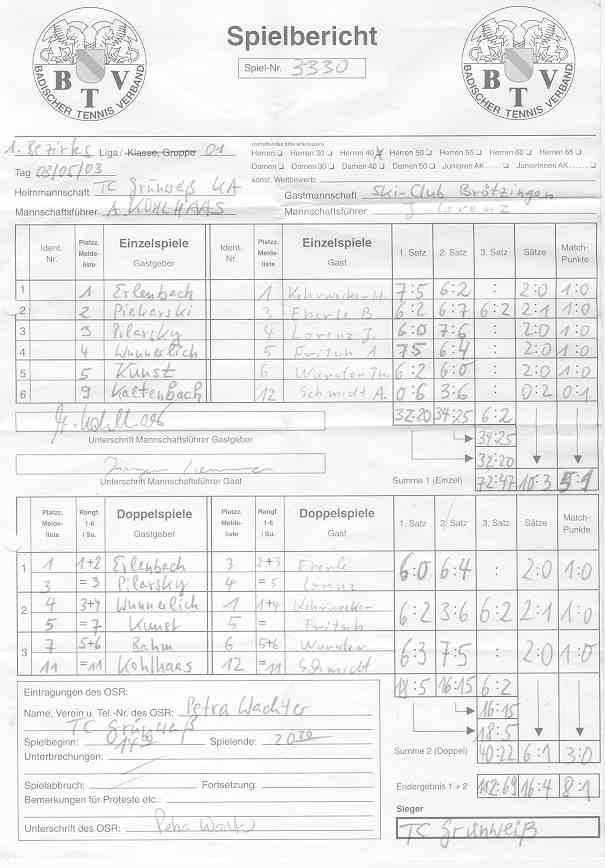 Spielbericht
Spiel-Nr. 3330
BADISCHER TENNIS VERBAND
BTV
BADISCHER TENNIS VERBAND
BTV
1. Bezirks Liga / Klasse, Gruppe 01
Herren Herren 30 Herren 40 x Herren 50 Herren 55 Herren 60 Herren 65
Tag 03/05/03
Damen Damen 30 Damen 40 Damen 50 Junioren AK..... Juniorinnen AK.....
sonst. Wettbewerb:
Heimmannschaft TC Grünweiß KA
Gastmannschaft Ski-Club Brötzingen
Mannschaftsführer A. KOHLHAAS
Mannschaftsführer J. Lorenz
Ident. Nr. Platzz. Melde-liste Einzelspiele Gastgeber Ident. Nr. Platzz. Melde-liste Einzelspiele Gast 1. Satz 2. Satz 3. Satz Sätze Match-Punkte
1 1 Erlenbach 1 H. 7:5 6:2 : 2:0 1:0
2 2 Piekarski 3 Eberle B 6:2 6:7 6:2 2:1 1:0
3 3 Pilarsky 4 Lorenz J. 6:0 7:6 : 2:0 1:0
4 4 Wunnerlich 5 Fritsch 75 6:4 : 2:0 1:0
5 5 Kunst 6 Wurster Th. 6:2 6:0 : 2:0 1:0
6 9 Kaltenbach 12 Schmidt A. 0:6 3:6 : 0:2 0:1
32:20 34:25 6:2
Unterschrift Mannschaftsführer Gastgeber
34:25
32:20
Unterschrift Mannschaftsführer Gast
Summe 1 (Einzel) 72:47 10:3 5:1
Platzz. Melde-liste Rangf. 1-6 / Su. Doppelspiele Gastgeber Platzz. Melde-liste Rangf. 1-6 / Su. Doppelspiele Gast 1. Satz 2. Satz 3. Satz Sätze Match-Punkte
1 1 1+2 Erlenbach 3 2+3 Eberle 6:0 6:4 : 2:0 1:0
3 =3 Pilarsky 4 =5 Lorenz
2 4 3+4 Wunnerlich 1 1+4 6:2 3:6 6:2 2:1 1:0
5 =7 Kunst 5 = Fritsch
3 7 5+6 Rahm 6 5+6 Wurster 6:3 7:5 : 2:0 1:0
11 =11 Kohlhaas 12 =11 Schmidt
18:5 16:15 6:2
Eintragungen des OSR:
Name, Verein u. Tel.-Nr. des OSR: Petra Wachter
16:15
TC Grünweiß
18:5
Spielbeginn: 14 00 Spielende: 20 20
Summe 2 (Doppel) 40:22 6:1 3:0
Unterbrechungen:
Spielabbruch: Fortsetzung:
Endergebnis 1 + 2 112:69 16:4 8:1
Bemerkungen für Proteste etc.:
Sieger
Unterschrift des OSR: Petra Wacht
TC Grünweiß